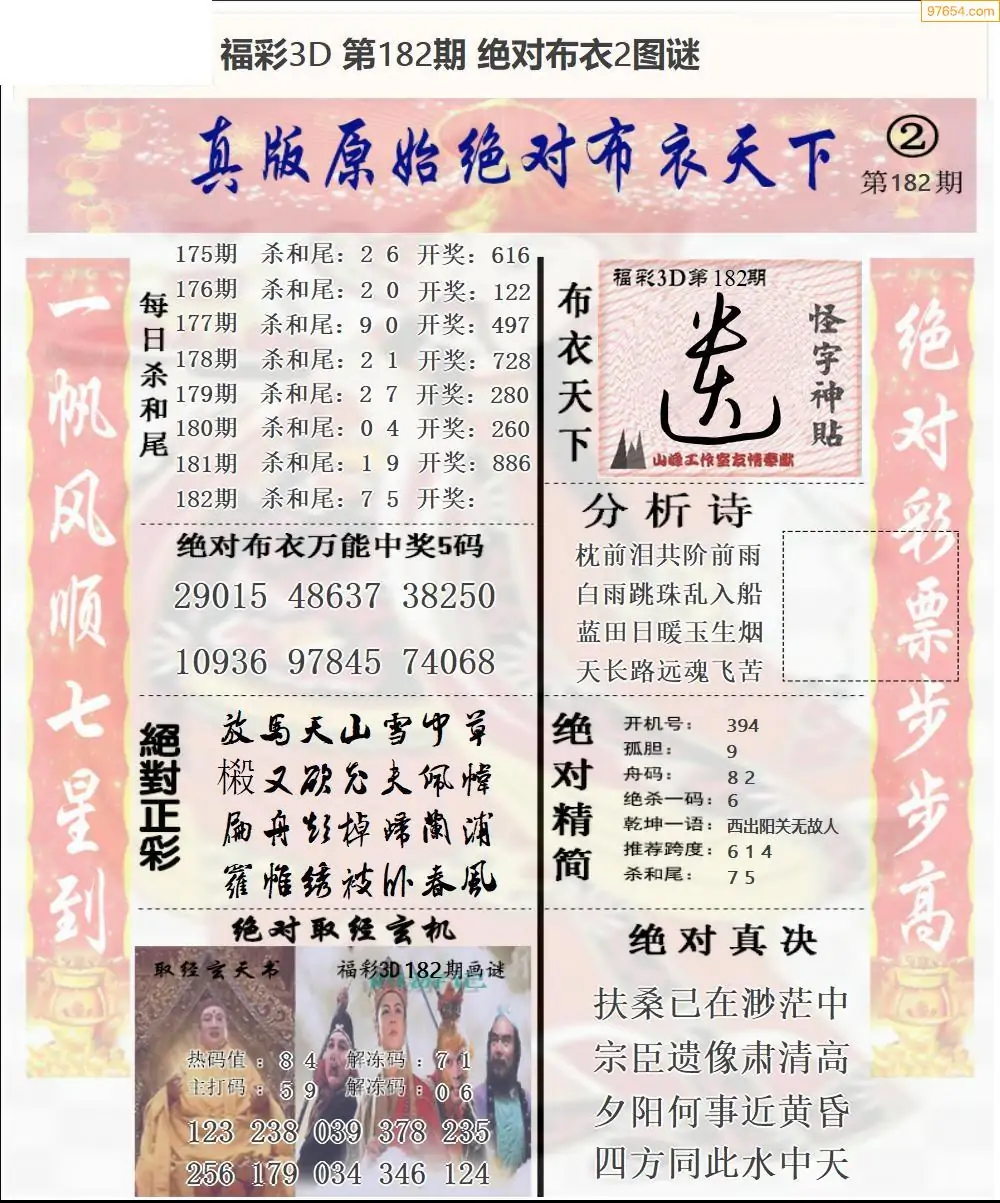 97654.com
福彩3D 第182期 绝对布衣2图谜
真版原始绝对布衣天下
②
第182期
一帆风顺七星到
每日杀和尾
175期 杀和尾：2 6 开奖：616
176期 杀和尾：2 0 开奖：122
177期 杀和尾：9 0 开奖：497
178期 杀和尾：2 1 开奖：728
179期 杀和尾：2 7 开奖：280
180期 杀和尾：0 4 开奖：260
181期 杀和尾：1 9 开奖：886
182期 杀和尾：7 5 开奖：
绝对布衣万能中奖5码
29015 48637 38250
10936 97845 74068
絕對正彩
放馬天山雪中草
又欲 夫佩幃
舟 棹歸蘭浦
羅帷绣被卧春風
绝对取经玄机
取经玄天书
福彩3D182期画谜
热码值：8 4 解冻码：7 1
主打码：5 9 解冻码：0 6
123 238 039 378 235
256 179 034 346 124
布衣天下
福彩3D第182期
怪字神贴
山峰工作室友情奉献
分析诗
枕前泪共阶前雨
白雨跳珠乱入船
蓝田日暖玉生烟
天长路远魂飞苦
绝对精简
开机号：394
孤胆：9
舟码：8 2
绝杀一码：6
乾坤一语：西出阳关无故人
推荐跨度：6 1 4
杀和尾：7 5
绝对真决
扶桑已在渺茫中
宗臣遗像肃清高
夕阳何事近黄昏
四方同此水中天
绝对彩票步步高